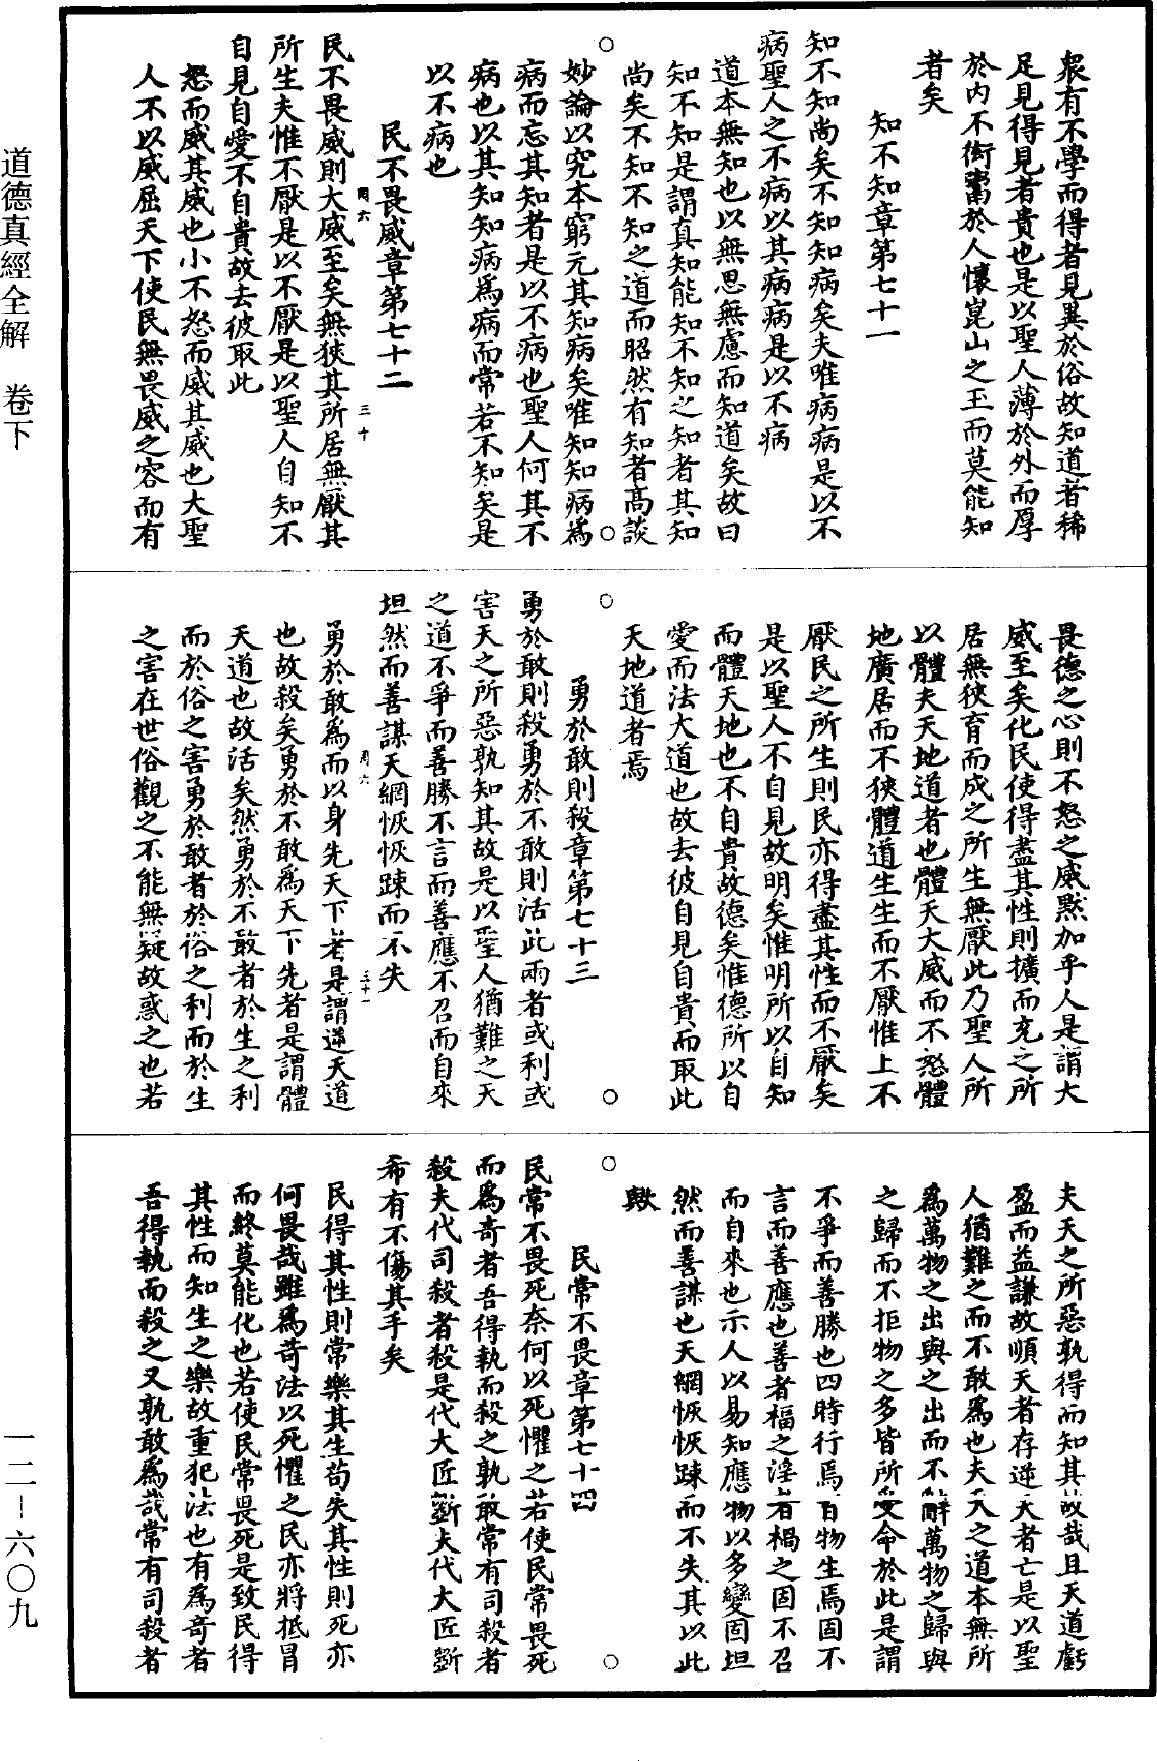 衆有不學而得者見異於俗故知道者稀
足見得見者貴也是以聖人薄於外而厚
於内不衒鬻於人懷崑山之玉而莫能知
者矣
知不知章第七十一
知不知尚矣不知知病矣夫唯病病是以不
病聖人之不病以其病病是以不病
道本無知也以無思無慮而知道矣故曰
知不知是謂真知能知不知之知者其知
尚矣不知不知之道而昭然有知者高談
妙論以究本窮元其知病矣唯知知病爲
病而忘其知者是以不病也聖人何其不
病也以其知知病爲病而常若不知矣是
以不病也
民不畏威章第七十二
民不畏威則大威至矣無狹其所居無厭其
所生夫惟不厭是以不厭是以聖人自知不
自見自愛不自貴故去彼取此
怒而威其威也小不怒而威其威也大聖
人不以威屈天下使民無畏威之容而有
畏德之心則不怒之威默加乎人是謂大
威至矣化民使得盡其性則擴而充之所
居無狹育而成之所生無厭此乃聖人所
以體夫天地道者也體天大威而不怒體
地廣居而不狹體道生生而不厭惟上不
厭民之所生則民亦得盡其性而不厭矣
是以聖人不自見故明矣惟明所以自知
而體天地也不自貴故德矣惟德所以自
愛而法大道也故去彼自見自貴而取此
天地道者焉
勇於敢則殺章第七十三
勇於敢則殺勇於不敢則活此兩者或利或
害天之所惡孰知其故是以聖人猶難之天
之道不爭而善勝不言而善應不召而自來
坦然而善謀天網恢恢踈而不失
勇於敢爲而以身先天下者是謂逆天道
也故殺矣勇於不敢爲天下先者是謂體
天道也故活矣然勇於不敢者於生之利
而於俗之害勇於敢者於俗之利而於生
之害在世俗觀之不能無疑故惑之也若
夫天之所惡孰得而知其故哉且天道虧
盈而益謙故順天者存逆天者亡是以聖
人猶難之而不敢爲也夫天之道本無所
爲萬物之出與之出而不辭萬物之歸與
之歸而不拒物之多皆所受命於此是謂
不爭而善勝也四時行焉百物生焉固不
言而善應也善者福之淫者禍之固不召
而自來也示人以易知應物以多變固坦
然而善謀也天網恢恢踈而不失其以此
歟
民常不畏章第七十四
民常不畏死奈何以死懼之若使民常畏死
而爲奇者吾得執而殺之孰敢常有司殺者
殺夫代司殺者殺是代大匠斵夫代大匠斵
希有不傷其手矣
民得其性則常樂其生苟失其性則死亦
何畏哉雖爲苛法以死懼之民亦將抵冒
而終莫能化也若使民常畏死是致民得
其性而知生之樂故重犯法也有爲奇者
吾得執而殺之又孰敢爲哉常有司殺者
道德真經全解　卷下
一二-六〇九